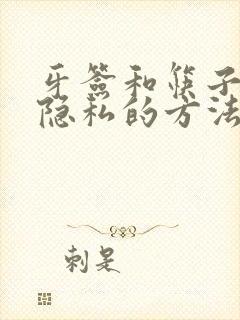 牙签和筷子
隐私的方法
刺是